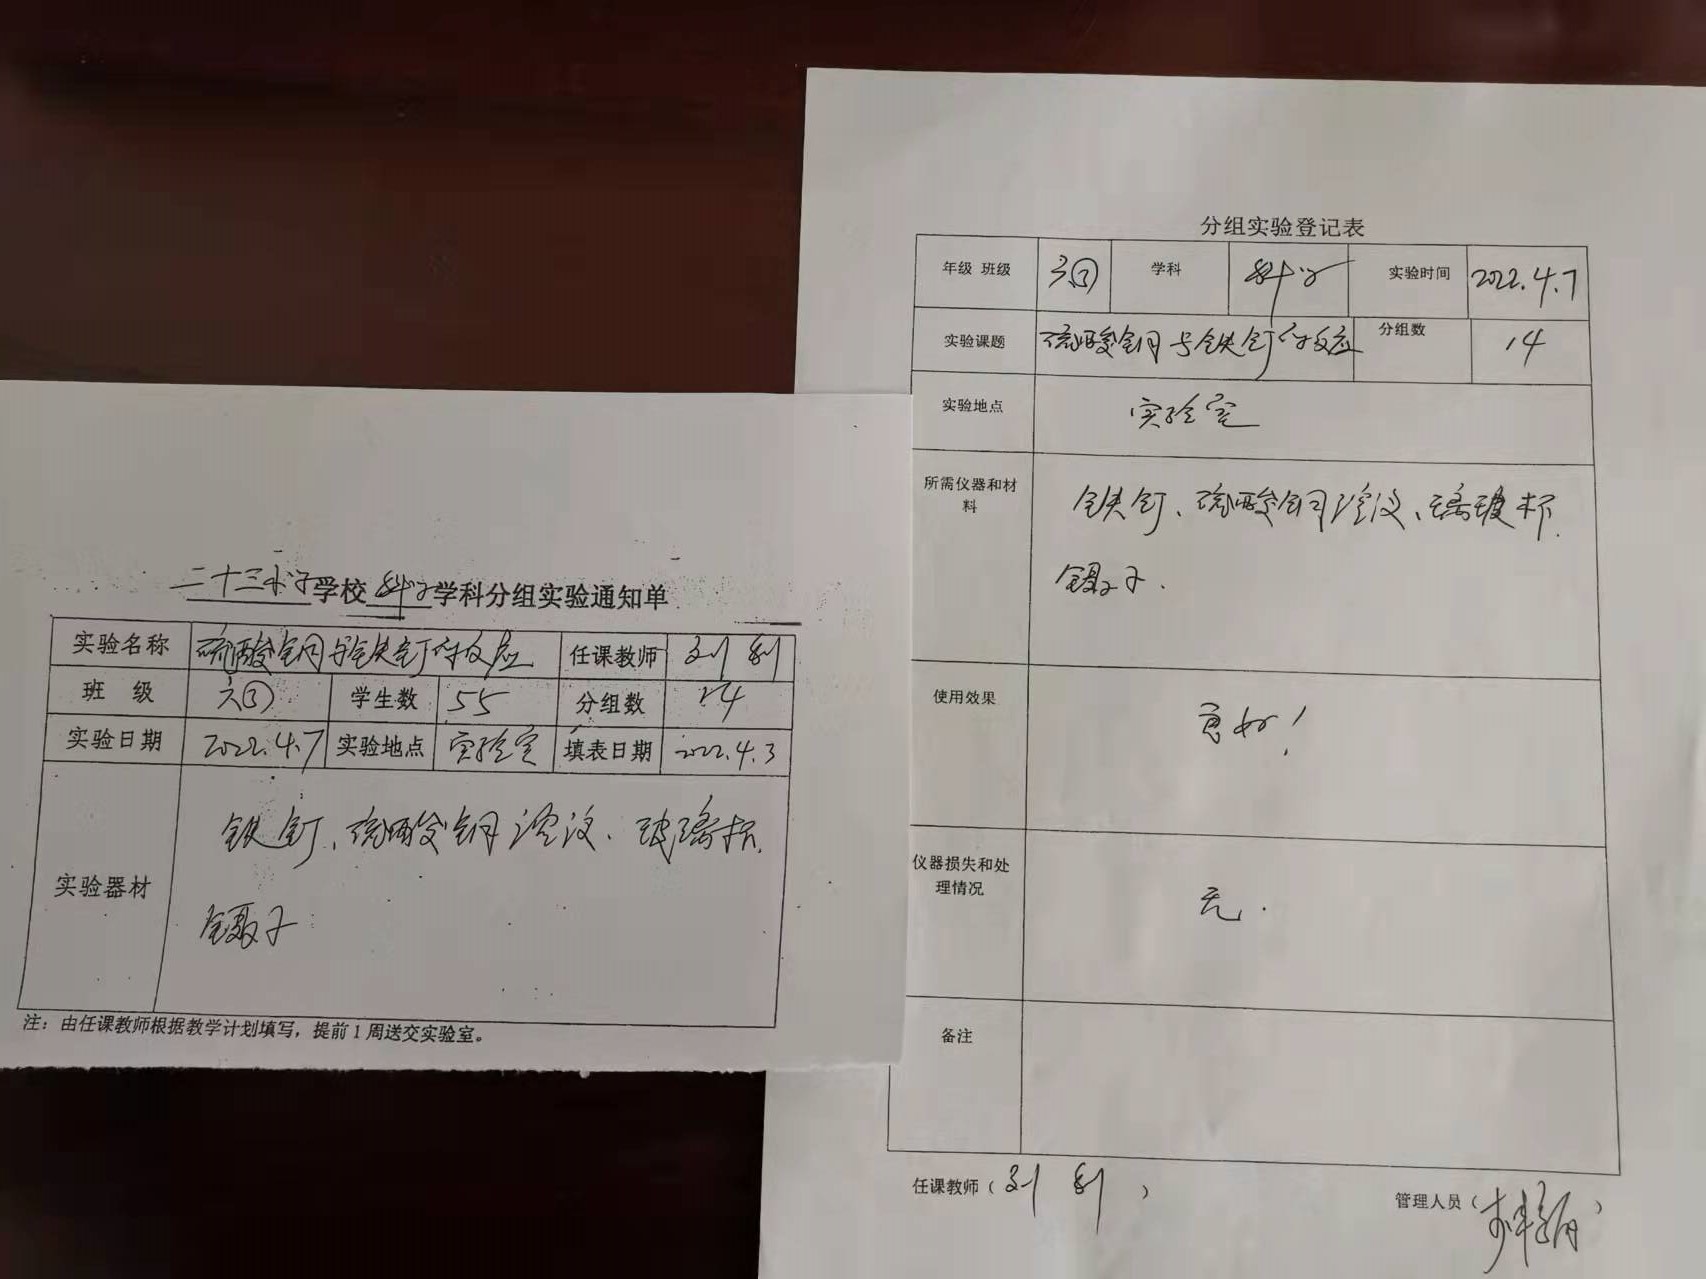 二十三小学学校科学学科分组实验通知单
实验名称 硫酸铜与铁钉的反应 任课教师 刘
班 级 六③ 学生数 55 分组数 14
实验日期 2022.4.7 实验地点 实验室 填表日期 2022.4.3
实验器材 铁钉、硫酸铜溶液、玻璃杯、
镊子
注：由任课教师根据教学计划填写，提前1周送交实验室。
分组实验登记表
年级 班级 六③ 学科 科学 实验时间 2022.4.7
实验课题 硫酸铜与铁钉的反应 分组数 14
实验地点 实验室
所需仪器和材
料
铁钉、硫酸铜溶液、璃玻杯、
镊子.
使用效果 良好！
仪器损失和处
理情况
无.
备注
任课教师（刘 ） 管理人员（ ）